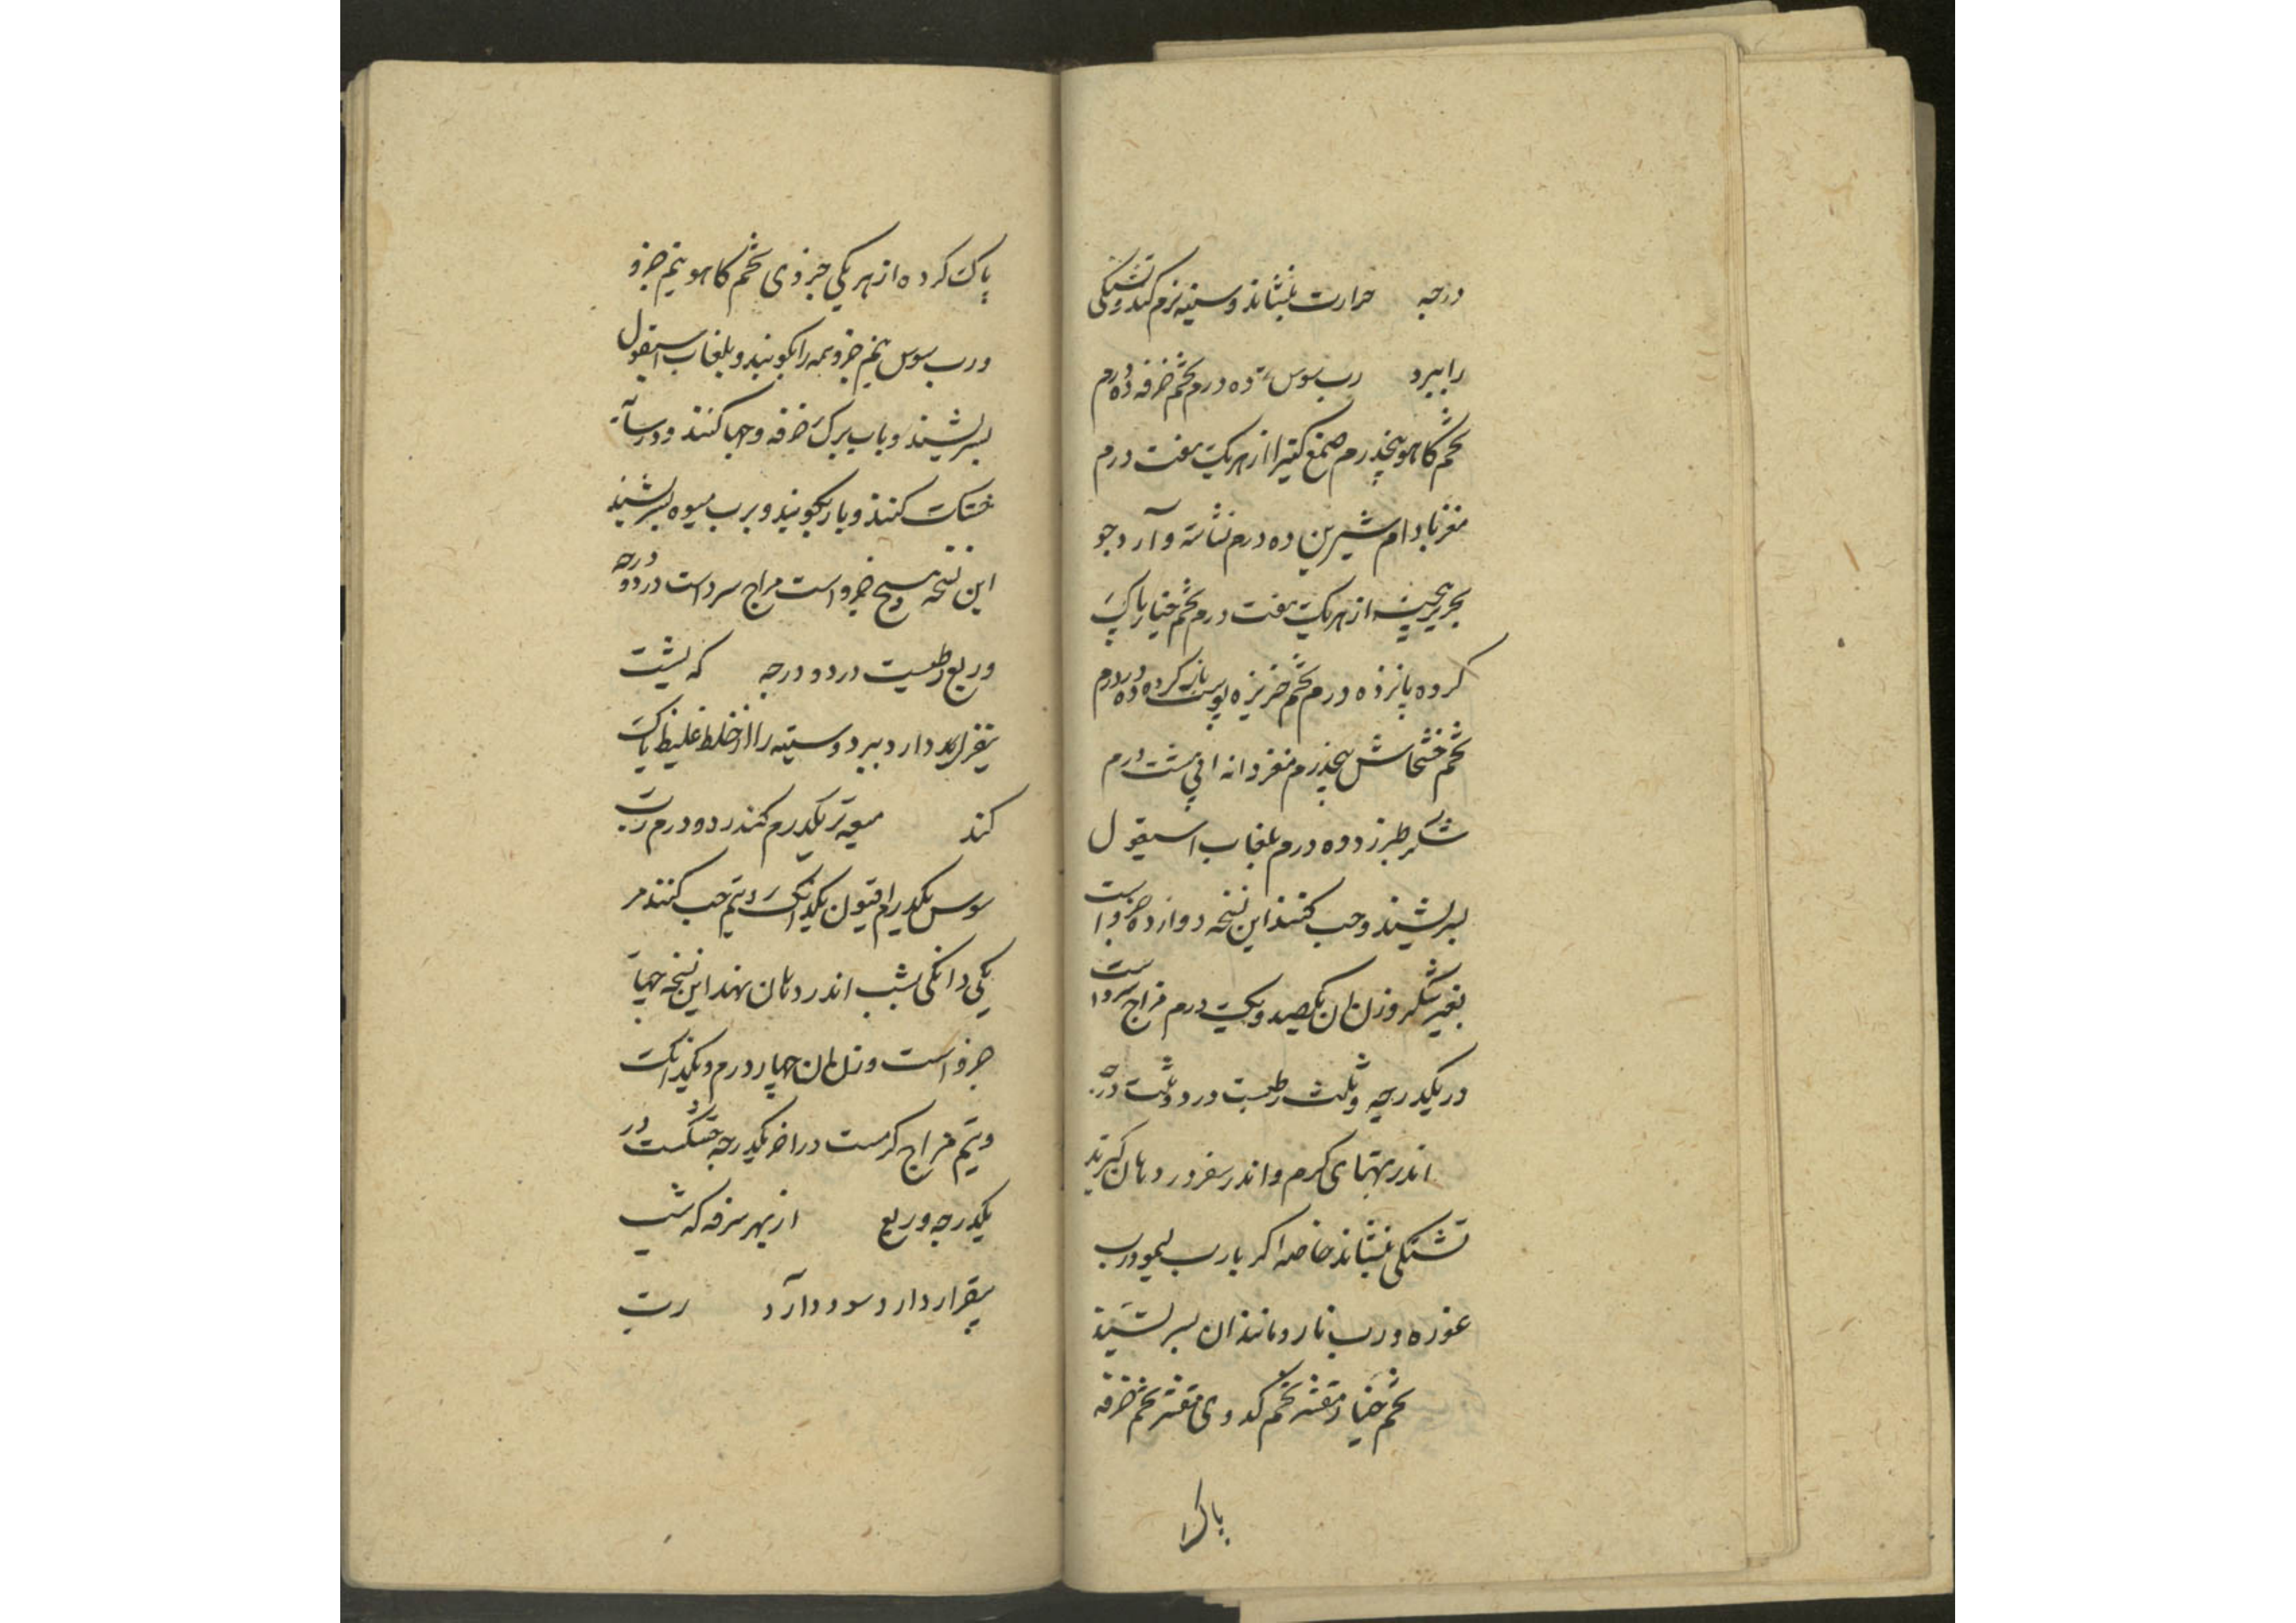 درجه حرارت بنشاند و سینه نرم کند و تشنگی
را ببرد رب سوس ده درم تخم خرفه ده درم
تخم کاهو پنجدرم صمغ کتیرا از هریک هفت درم
مغز بادام شیرین ده درم نشاسته و آرد جو
از هریک هفت درم تخم خیار پاک
کرده پانزده درم تخم خربزه پوست باز کرده ده درم
تخم خشخاش پنجدرم مغز دانه هشت درم
شکر طبرزد ده درم بلعاب اسپغول
بسرشند و حب کنند این نسخه دوازده جزو است
بغیر شکر وزن آن یکصد و یک درم مزاج سرد است
در یکدرجه و ثلث رطبست در دو ثلث درجه
اندر تبهای گرم و اندر سفر در دهان گیرند
تشنگی بنشاند خاصه اگر با رب لیمو و رب
غوره و رب نار و مانند آن بسرشند
تخم خیار مقشر تخم کدوی مقشر تخم خرفه
پاک
پاک کرده از هر یکی جزوی تخم کاهو نیم جزو
و رب سوس نیم جزو همه را بکوبند و بلعاب اسپغول
بسرشند و باب برک خرفه و حبها کنند و در سایه
خشک کنند و باز بکوبند و برب میوه بسرشند
این نسخه پنج جزو است مزاج سرد است در دو درجه
و ربع رطبست در دو درجه که بشب
بیقرار دارد ببرد و سینه را از خلط غلیظ پاک
کند میعه تر یکدرم کندر دو درم رب
سوس یکدرم افیون یکدانک و نیم حب کنند هر
یکی دانکی بشب اندر دهان نهند این نسخه چهار
جزو است وزن آن چهار درم و یکدانک
و نیم مزاج کرمست در آخر یکدرجه خشکست در
یکدرجه و ربع از بهر سرفه که شب
بیقرار دارد سود دارد رب